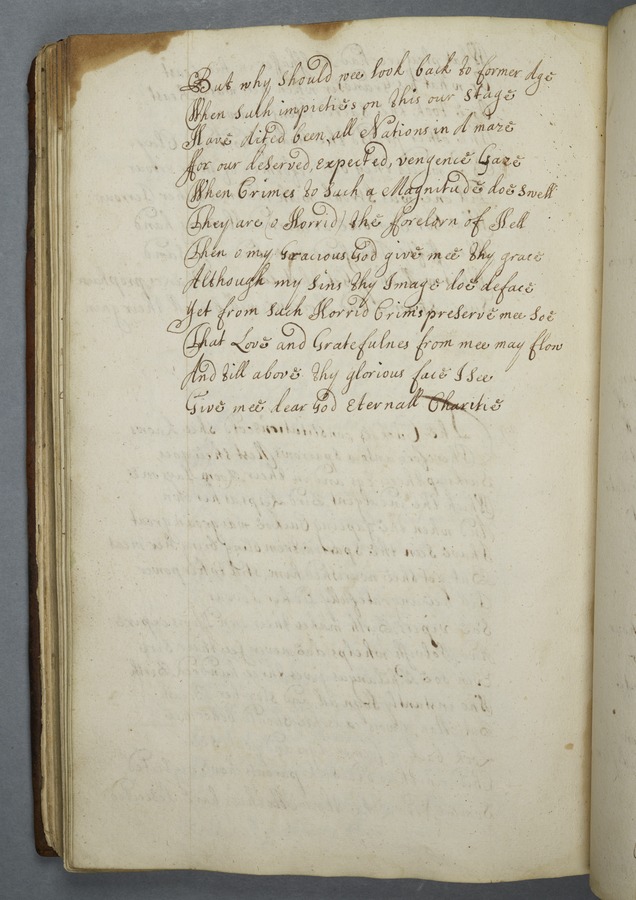 But why should wee look back to former Age
When such impieties on this our Stage
Have Acted been, all Nations in A maze
ffor our deserved, expected, vengence Gaze
When Crimes to such a Magnitude doe swell
They are (o Horrid) the fforelorn of Hell
Then o my Gracious God give mee thy grace
Although my sins thy Image doe deface
Yet from such Horrid Crims preserve mee soe
That Love and Gratefulnes from mee may flow
And till above thy glorious face I see
Give mee dear God Eternall Charitie